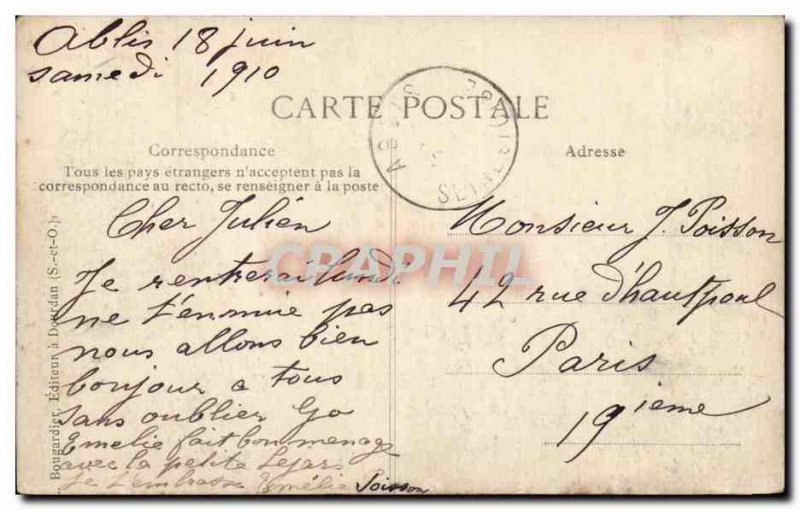 Ablis 18 juin
samedi 1910
CARTE POSTALE
Correspondance
Tous les pays étrangers n'acceptent pas la
correspondance au recto, se renseigner à la poste
Adresse
ABLIS
SEINE
Cher Julien
Je rentrerai lundi
ne t'ennuie pas
nous allons bien
bonjour a tous
sans oublier
Emelie fait bon menage
avec la petite Lejars
Je t'embrasse Emélie Poisson
Monsieur J. Poisson
42 rue d'hautpoul
Paris
19ième
Bougardier, Éditeur à Dourdan (S.-et-O.)
CPAPHIL